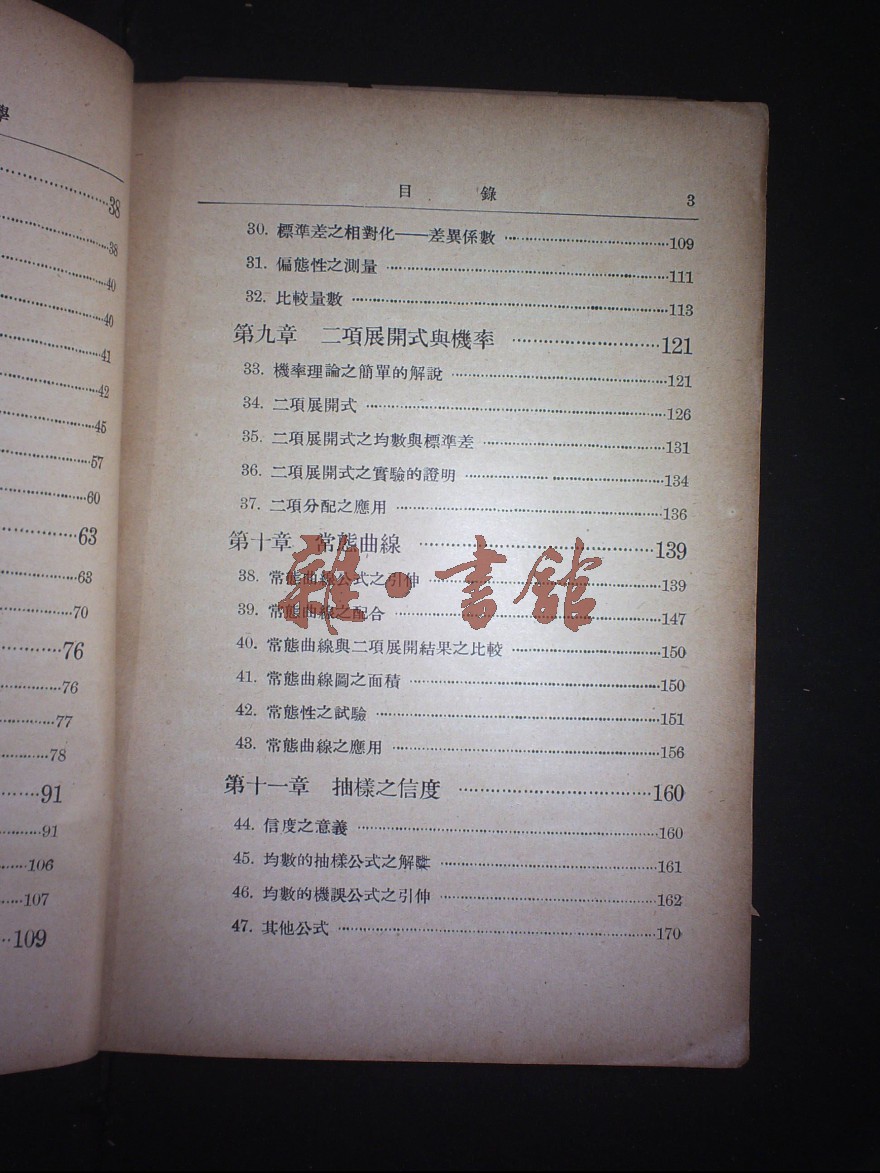 學
38
38
40
40
41
42
45
57
60
63
63
70
76
76
77
78
91
91
106
107
109
目 錄 3
30. 標準差之相對化——差異係數 109
31. 偏態性之測量 111
32. 比較量數 113
第九章 二項展開式與機率 121
33. 機率理論之簡單的解說 121
34. 二項展開式 126
35. 二項展開式之均數與標準差 131
36. 二項展開式之實驗的證明 134
37. 二項分配之應用 136
第十章 常態曲線 139
38. 常態曲線公式之引伸 139
39. 常態曲線之配合 147
40. 常態曲線與二項展開結果之比較 150
41. 常態曲線圖之面積 150
42. 常態性之試驗 151
43. 常態曲線之應用 156
第十一章 抽樣之信度 160
44. 信度之意義 160
45. 均數的抽樣公式之解 161
46. 均數的機誤公式之引伸 162
47. 其他公式 170
雜·書館